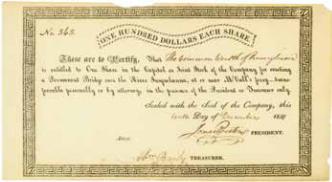 ONE HUNDRED DOLLARS EACH SHARE
No. 343.
These are to Certify, That The Commonwealth of Pennsylvania
is entitled to One Share in the Capital or Joint Stock of the Company for erecting
a Permanent Bridge over the River Susquehanna, at or near M'Call's ferry—trans-
ferable personally or by attorney in the presence of the President or Treasurer only.
Sealed with the Seal of the Company, this
Day of December
PRESIDENT.
Attest
TREASURER.